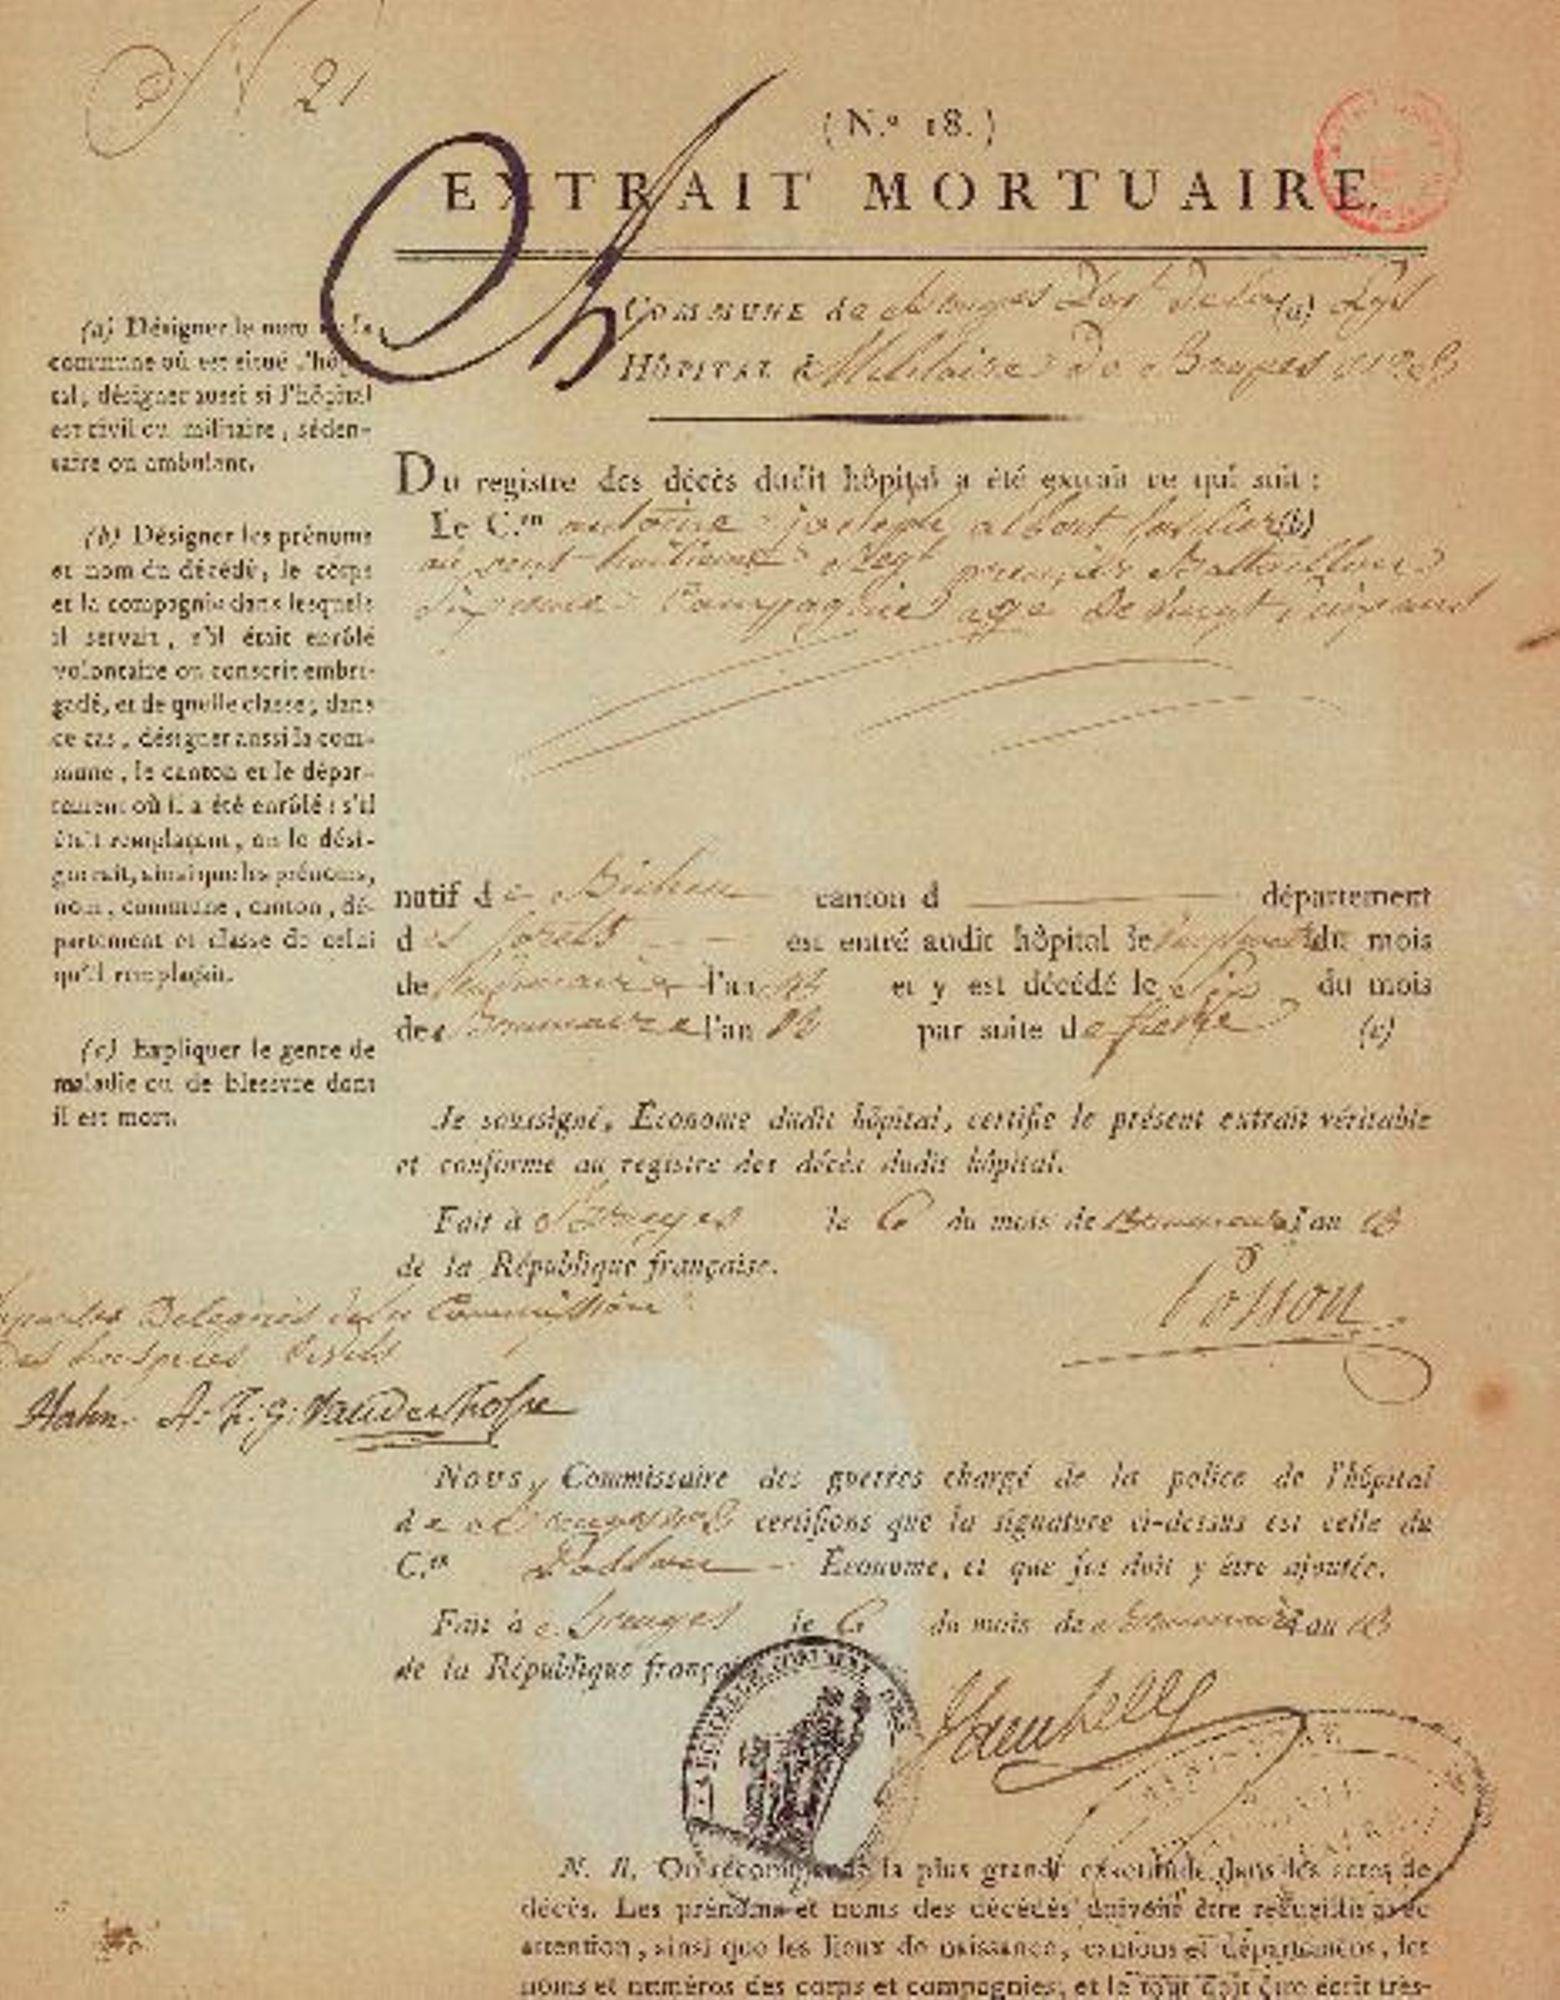 N 21
(N.º 18.)
EXTRAIT MORTUAIRE.
COMMUNE de Bruges Dept de la (a) Lys
HÔPITAL Militaire De Bruges
(a) Désigner le nom de la
commune où est situé l'hôpi-
tal, désigner aussi si l'hôpital
est civil ou militaire, séden-
taire ou ambulant.
(b) Désigner les prénoms
et nom du décédé, le corps
et la compagnie dans lesquels
il servait, s'il était enrôlé
volontaire ou conscrit embri-
gadé, et de quelle classe; dans
ce cas, désigner aussi la com-
mune, le canton et le dépar-
tement où il a été enrôlé: s'il
était remplaçant, on le dési-
gnerait, ainsi que les prénoms,
nom, commune, canton, dé-
partement et classe de celui
qu'il remplaçait.
(c) Expliquer le genre de
maladie ou de blessure dont
il est mort.
Du registre des décès dudit hôpital a été extrait ce qui suit:
Le C.en antoine joseph albert fusilier (b)
au cent huitieme Regt premier Bataillon
Sixieme Compagnie agé De vingt cinq ans
natif de canton d département
des forets est entré audit hôpital le du mois
de l'an et y est décédé le Six du mois
de Brumaire l'an 13 par suite de fievre (c)
Je soussigné, Économe dudit hôpital, certifie le présent extrait véritable
et conforme au registre des décès dudit hôpital.
Fait à Bruges le 6 du mois de Brumaire l'an 13
de la République française.
Posson
Delegués de la Commission
des hospices Civils
Hahn. A. F. G. Vanderhofse
Nous, Commissaire des guerres chargé de la police de l'hôpital
de Bruges certifions que la signature ci-dessus est celle du
C.en Posson Économe, et que foi doit y être ajoutée.
Fait à Bruges le 6 du mois de Brumaire l'an 13
de la République française
N. B. On recommande la plus grande exactitude dans les actes de
décès. Les prénoms et noms des décédés doivent être recueillis avec
attention, ainsi que les lieux de naissance, cantons et départemens, les
noms et numéros des corps et compagnies; et le tout doit être écrit très-